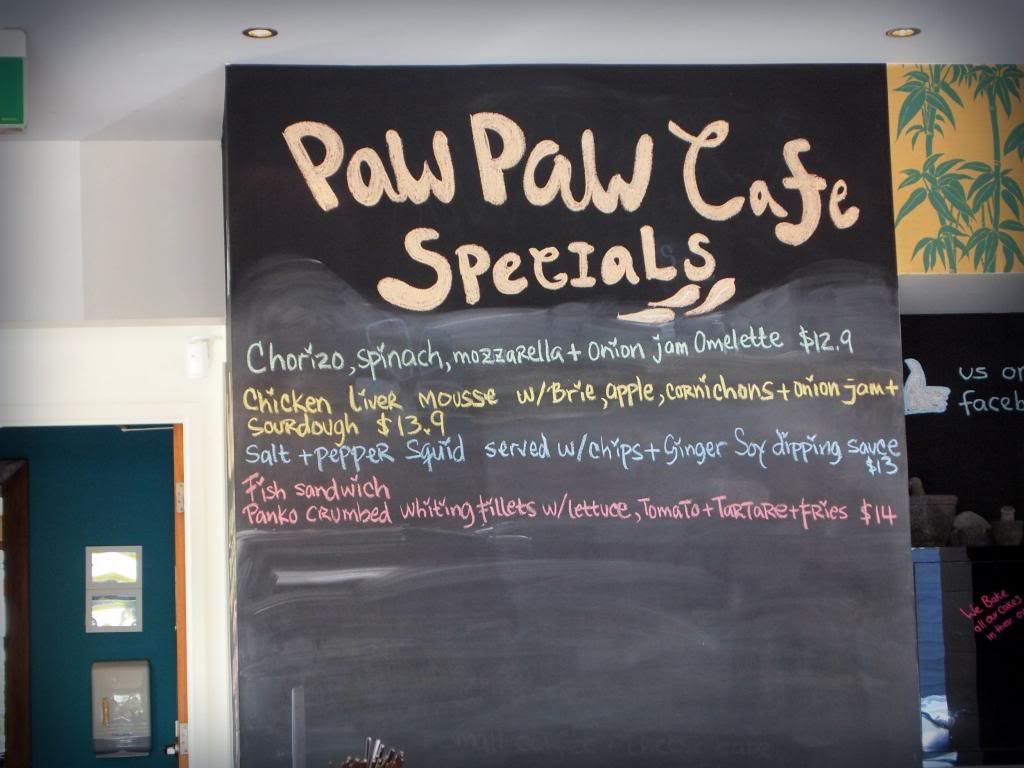 Paw Paw Cafe
Specials
Chorizo, spinach, mozzarella + onion jam Omelette $12.9
Chicken liver mousse w/Brie, apple, cornichons + onion jam +
sourdough $13.9
Salt + pepper Squid served w/chips + Ginger Soy dipping sauce
$13
Fish sandwich
Panko crumbed whiting fillets w/lettuce, Tomato + Tartare + fries $14
us on
faceb
We Bake
all our cakes
in their